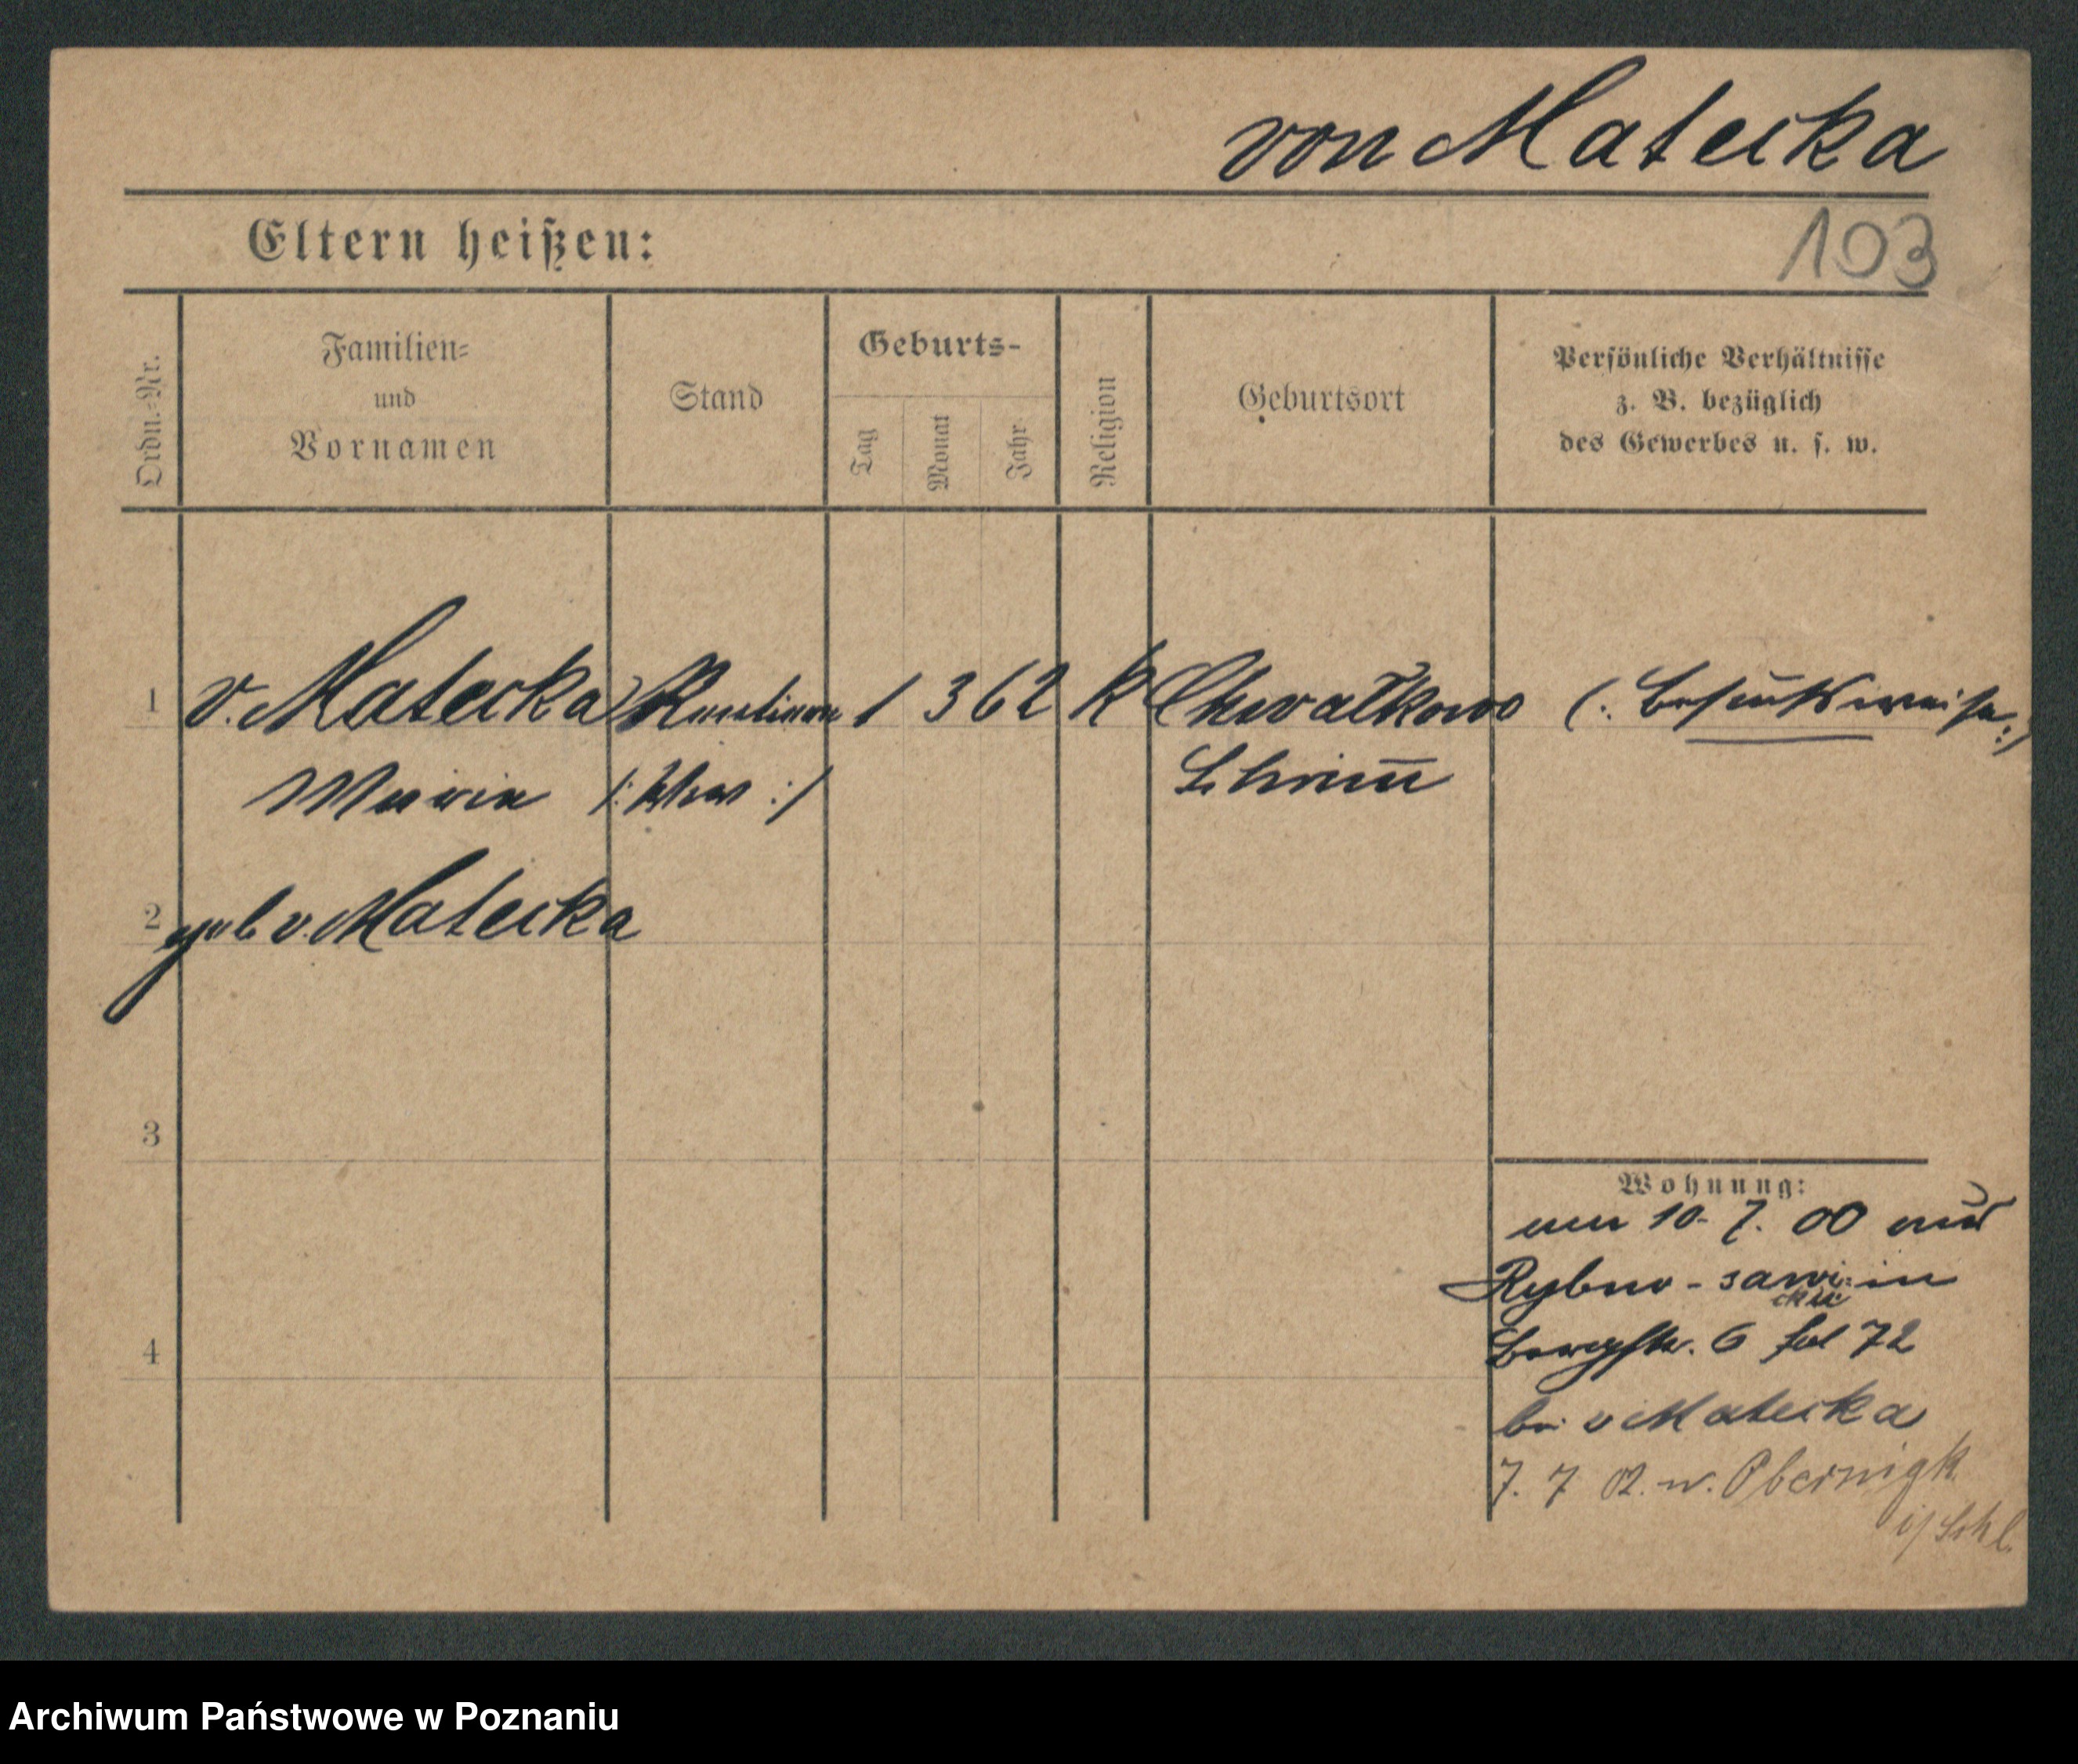 von Mateika
103
Eltern heißen:
Ordn.-Nr.
Familien-
und
Vornamen
Stand
Geburts-
Tag
Monat
Jahr
Religion
Geburtsort
Persönliche Verhältnisse
z. B. bezüglich
des Gewerbes u. s. w.
1 v. Matecka Rentiere 1 3 62 k Chwałkowo (: besuchsweise :)
Maria Schrimm
2 geb v. Matecka
3
4
Wohnung:
10. 7. 00 aus
Rybno - in
Bergstr. 6 72
bei v Matecka
7. 7 02. n. Obernigk
i/ Schl.
Archiwum Państwowe w Poznaniu